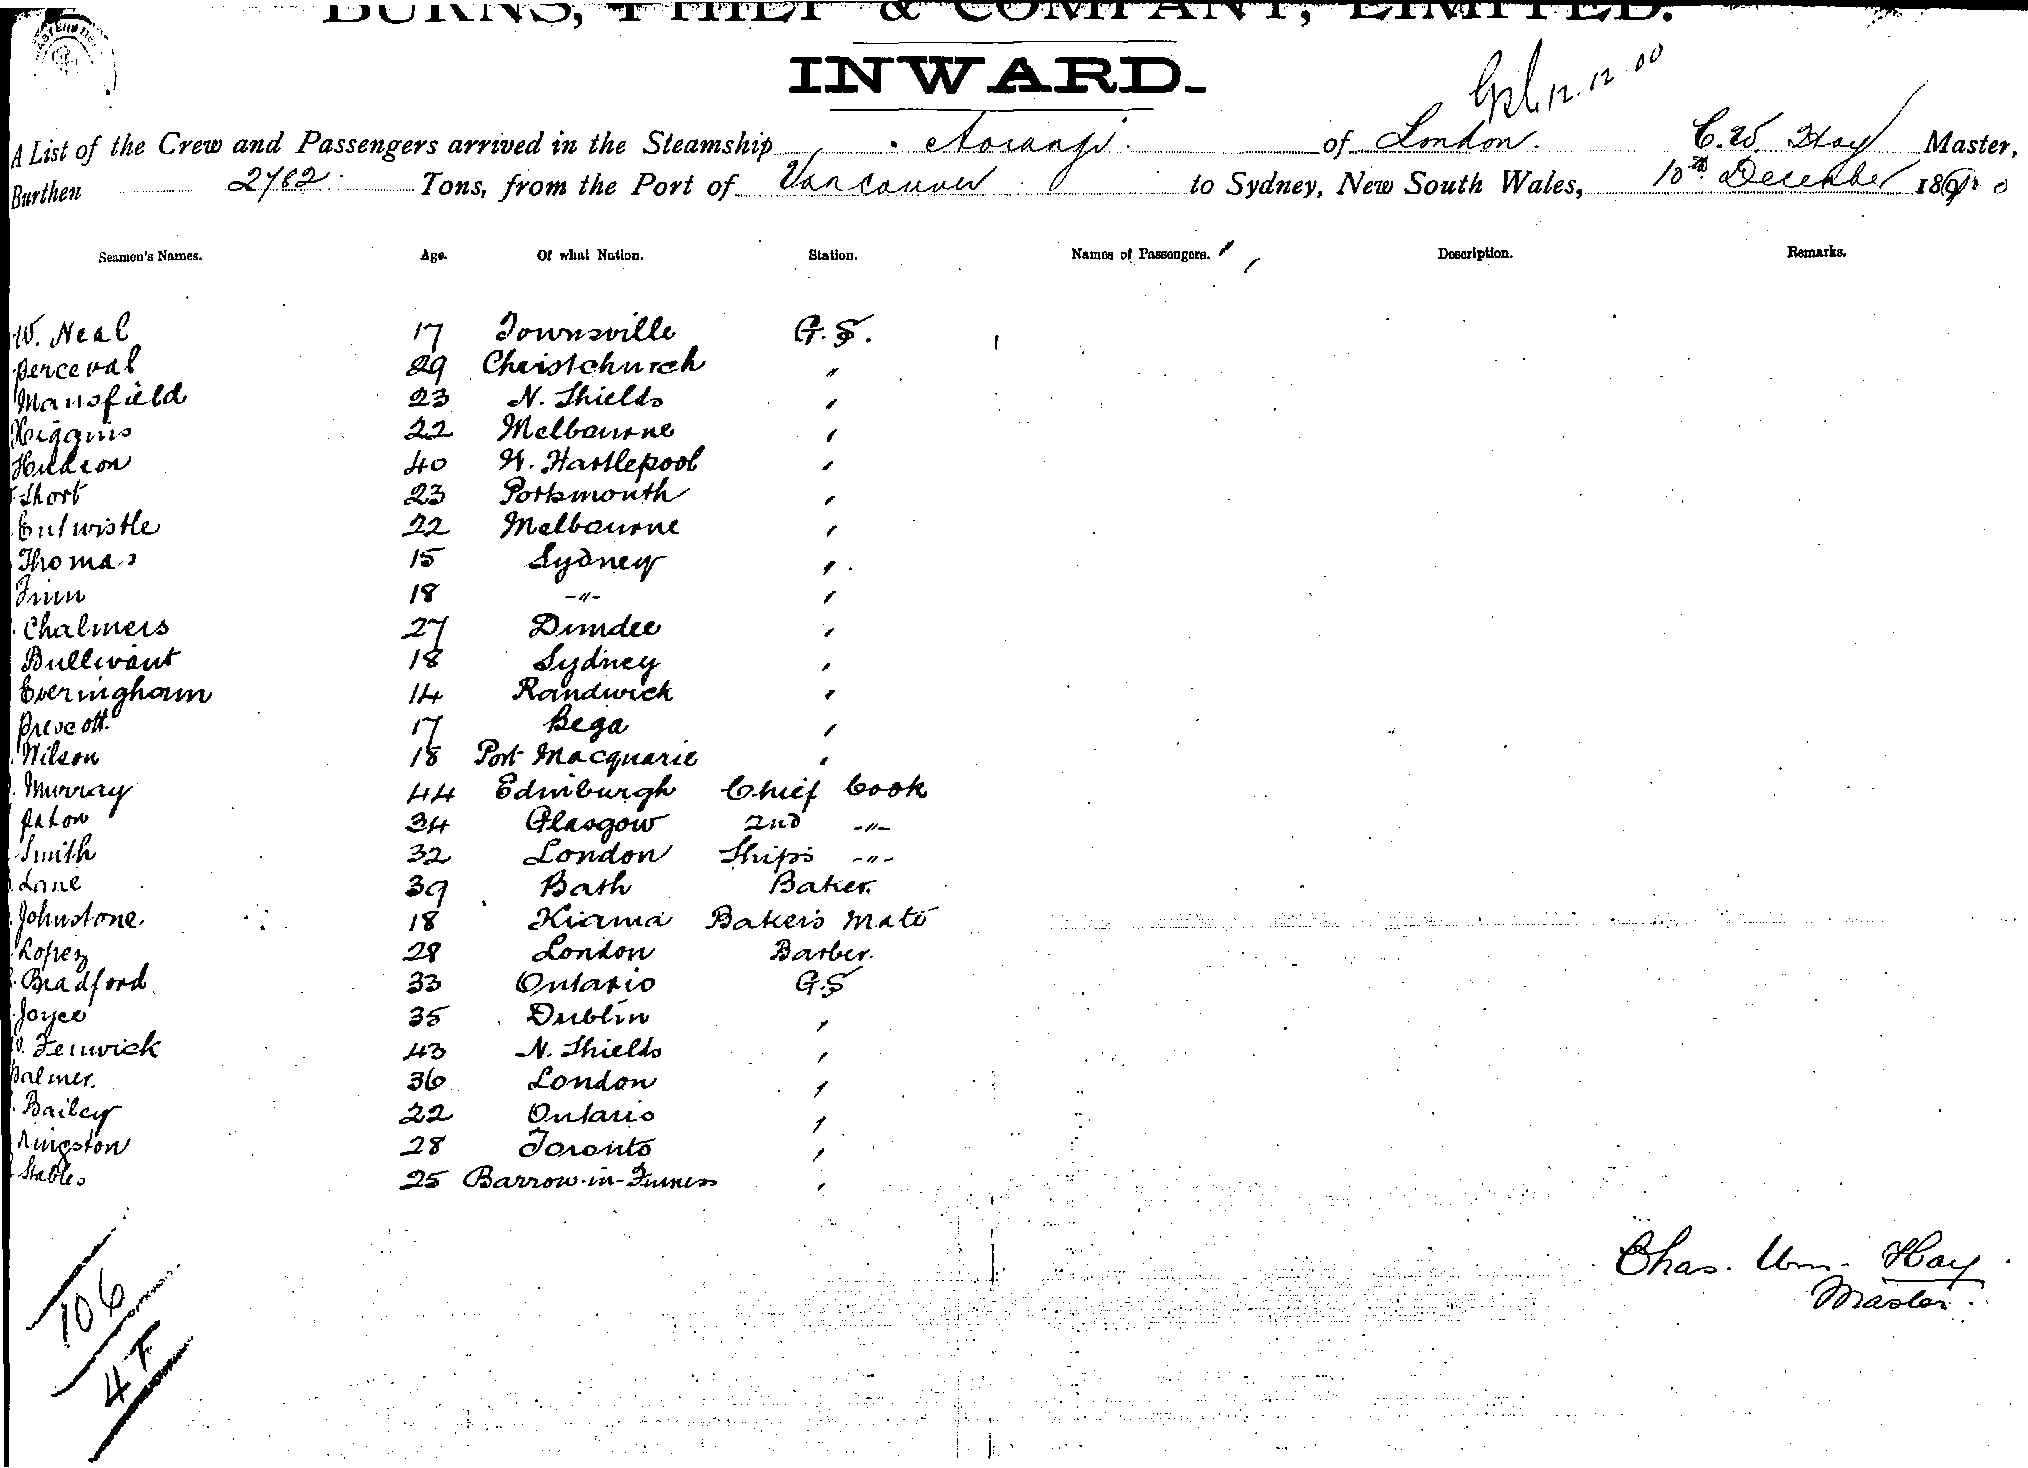 BURNS, PHILP & COMPANY, LIMITED.
INWARD.
12.12.00
A List of the Crew and Passengers arrived in the Steamship Aorangi of London. C. W. Hay Master,
Burthen 2782 Tons, from the Port of Vancouver to Sydney, New South Wales, 10th December 1900
Seamen's Names. Age. Of what Nation. Station. Names of Passengers. Description. Remarks.
W. Neal 17 Townsville G.S.
Perceval 29 Christchurch "
Mansfield 23 N. Shields "
Higgins 22 Melbourne "
Hudson 40 W. Hartlepool "
Short 23 Portsmouth "
Entwistle 22 Melbourne "
Thomas 15 Sydney "
Finn 18 -"- "
Chalmers 27 Dundee "
Bullivant 18 Sydney "
Everingham 14 Randwick "
Prescott. 17 Bega "
Wilson 18 Port Macquarie "
Murray 44 Edinburgh Chief Cook
Paton 34 Glasgow 2nd -"-
Smith 32 London Ships -"-
Lane 39 Bath Baker.
Johnstone. 18 Kiama Baker's Mate
Lopez 28 London Barber.
Bradford 33 Ontario G.S
Joyce 35 Dublin "
Fenwick 43 N. Shields "
Palmer. 36 London "
Bailey 22 Ontario "
Kingston 28 Toronto "
Stables 25 Barrow-in-Furness "
Chas. Wm. Hay
Master.
106
4F